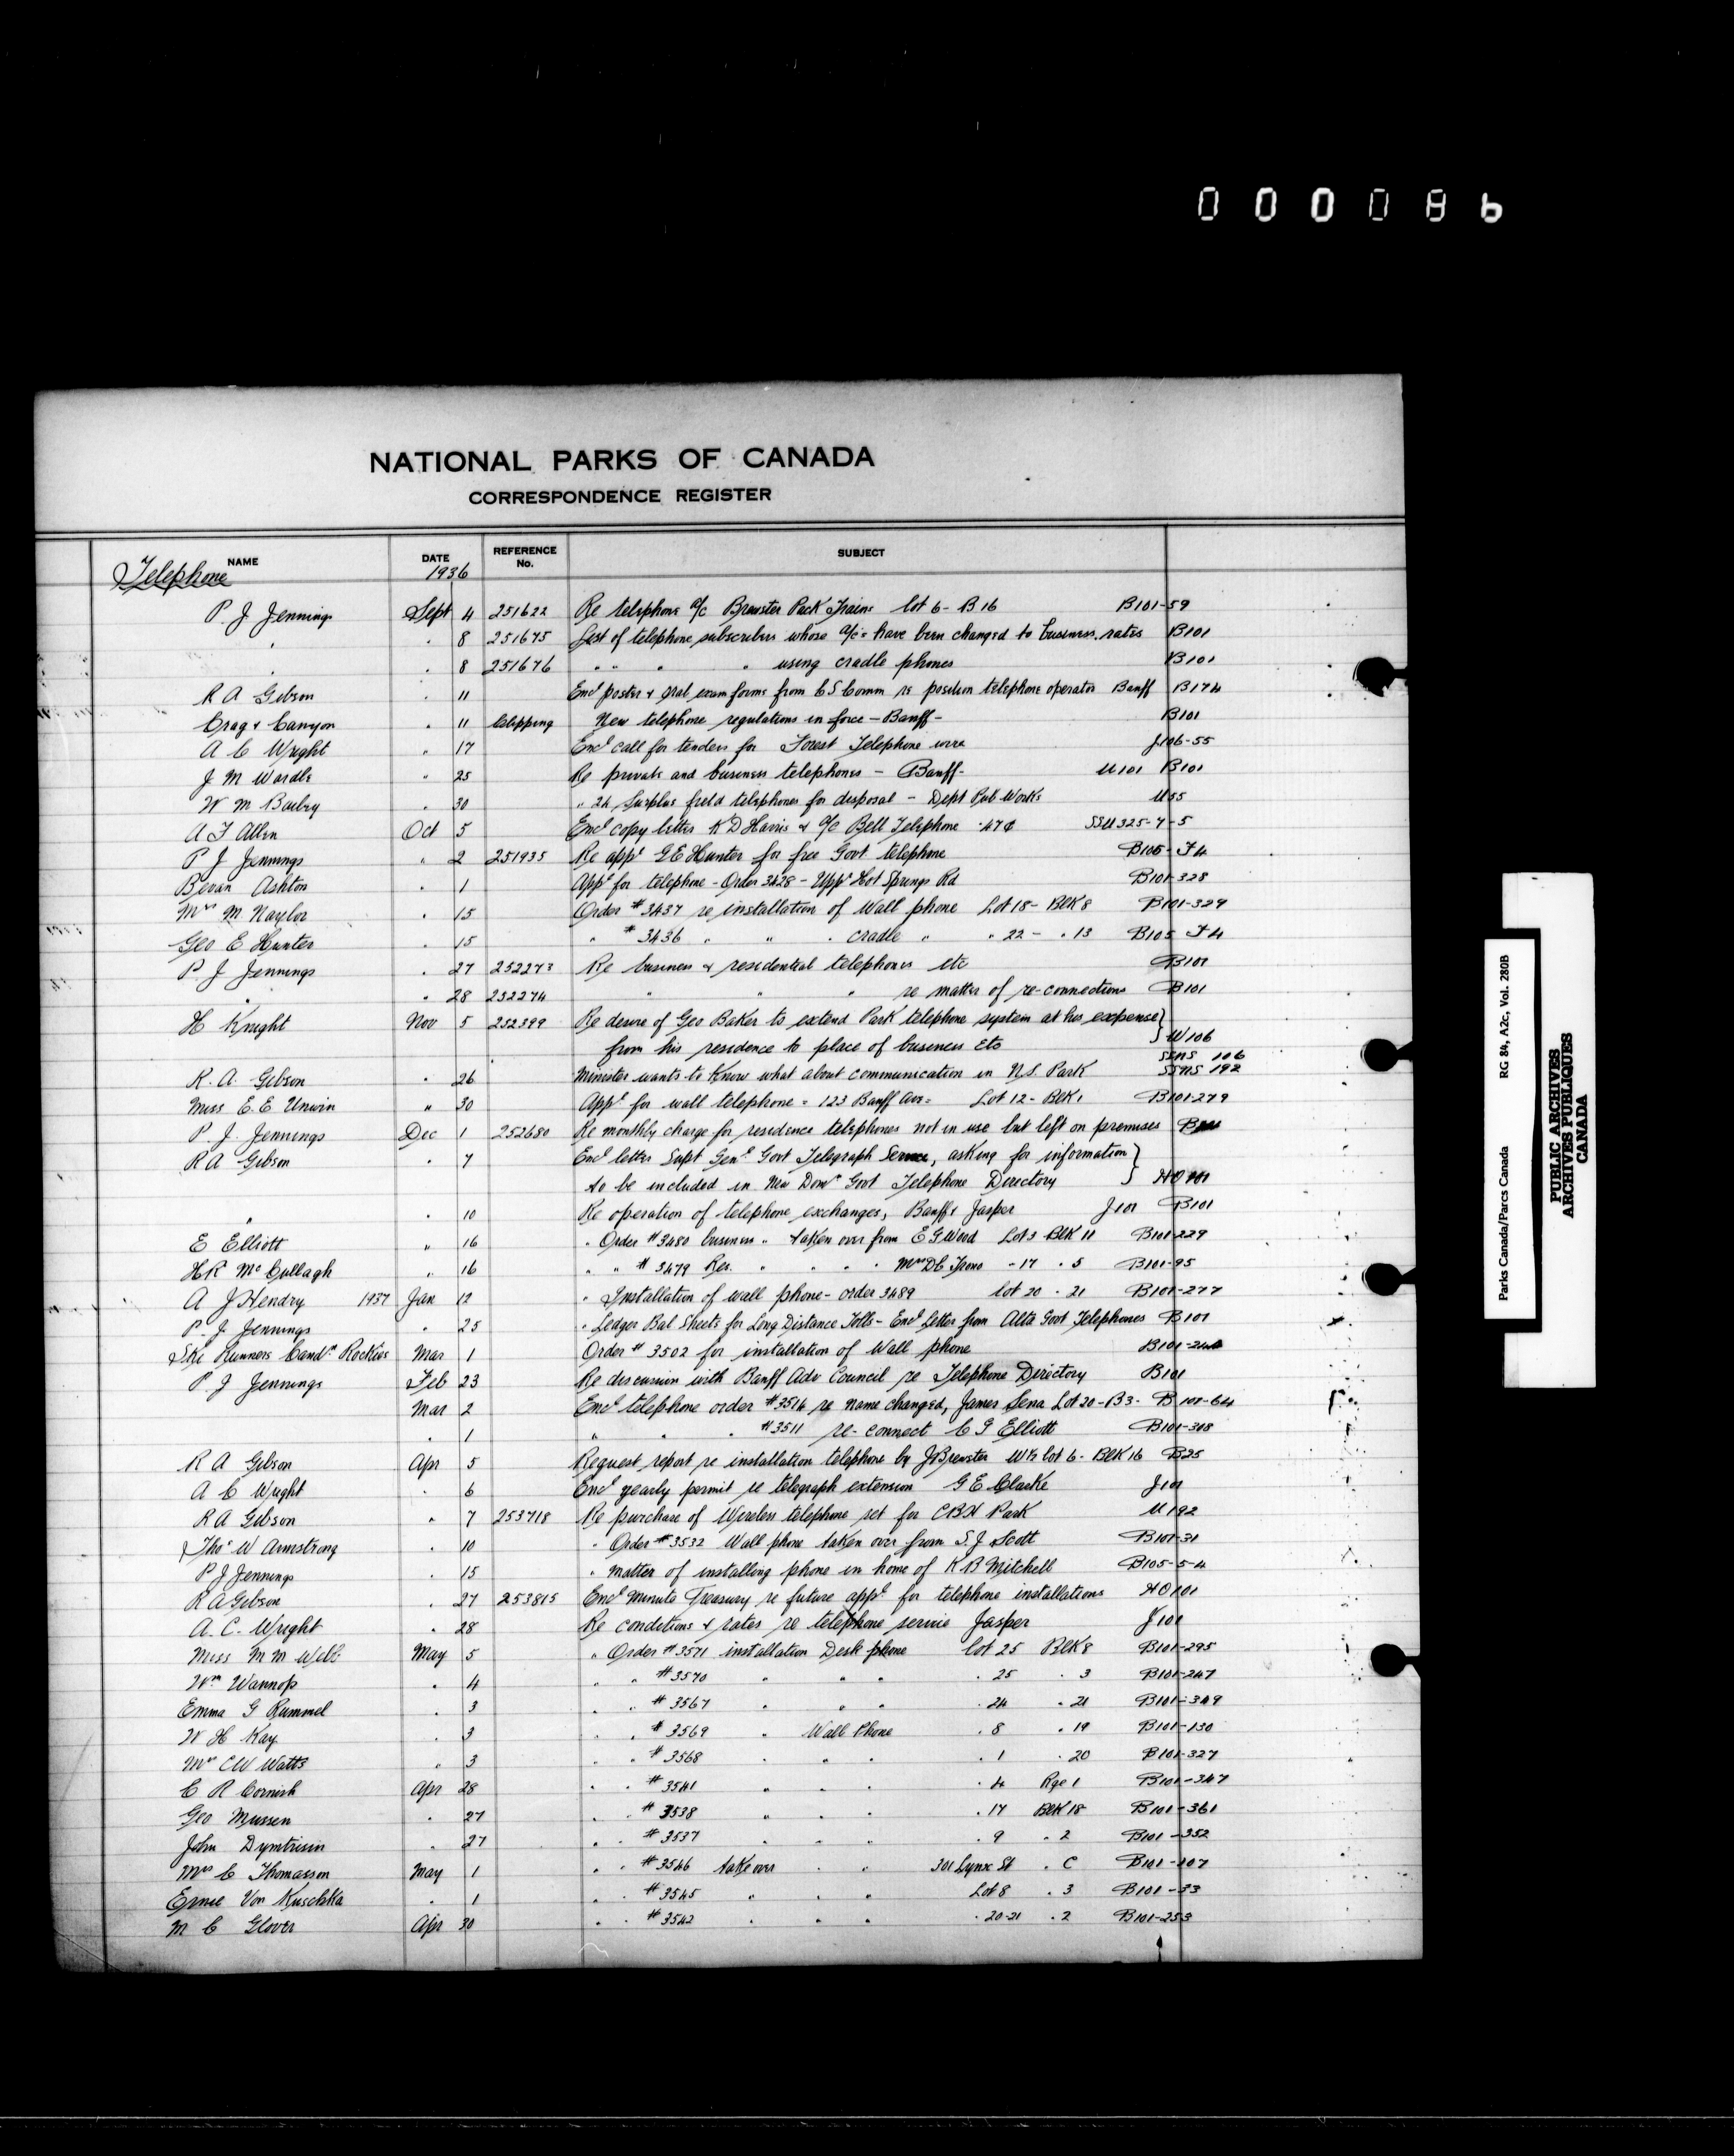 000086
NATIONAL PARKS OF CANADA
CORRESPONDENCE REGISTER
NAME DATE REFERENCE No. SUBJECT
Telephone 1936
P. J Jennings Sept 4 251622 Re telephone a/c Brewster Pack Trains lot 6 - B 16 B101-59
" . 8 251675 List of telephone subscribers whose a/c's have been changed to business rates B101
. . 8 251676 " " " " using cradle phones B101
R A Gibson . 11 Encl poster & gnal exam forms from C S Comm re position telephone operator Banff B174
Crag & Canyon . 11 Clipping New telephone regulations in force - Banff - B101
A C Wright " 17 Encl call for tenders for Forest Telephone wire J106-55
J M Wardle " 25 Re private and business telephones - Banff - U101 B101
W M Baily . 30 " 24 Surplus field telephones for disposal - Dept Pub Works U55
A F Allen Oct 5 Encl copy letter K D Harris & a/c Bell Telephone .47¢ SSU325-7-5
P J Jennings " 2 251935 Re appn G E Hunter for free Govt telephone B105-F4
Bevan Ashton . 1 Appn for telephone - Order 3428 - Uppr Hot Springs Rd B101-328
Mrs M Naylor . 15 Order #3437 re installation of Wall phone Lot 18 - Blk 8 B101-329
Geo E Hunter . 15 " #3436 " " . cradle " " 22 - " 13 B105 F4
P J Jennings . 27 252273 Re business & residential telephones etc B101
" . 28 252274 " " " re matter of re-connections B101
H Knight Nov 5 252399 Re desire of Geo Baker to extend Park telephone system at his expense }
from his residence to place of business etc } W106
R. A. Gibson . 26 Minister wants to know what about communication in N.S. Park SSNS 106 SSNS 192
Miss E. E Unwin " 30 Appn for wall telephone = 123 Banff Ave = Lot 12 - Blk 1 B101-279
P. J. Jennings Dec 1 252680 Re monthly charge for residence telephones not in use but left on premises
R A Gibson . 7 Encl letter Supt Genl Govt Telegraph Service, asking for information }
to be included in New Domn Govt Telephone Directory } HO 101
" . 10 Re operation of telephone exchanges, Banff & Jasper J101 B101
E Elliott " 16 " Order #3480 business " taken over from E G Word Lot 3 Blk 11 B101-229
H R McCullagh " 16 " " #3479 Res. " " " " Mrs D C - 17 . 5 B101-95
A J Hendry 1937 Jan 12 " Installation of wall phone - order 3489 lot 20 . 21 B101-277
P. J. Jennings . 25 " Ledger Bal Sheets for Long Distance Tolls - Encl Letter from Alta Govt Telephones B101
Ski Runners Candn Rockies Mar 1 Order #3502 for installation of Wall phone
P. J Jennings Feb 23 Re discussion with Banff Adv Council re Telephone Directory B101
Mar 2 Encl telephone order #3514 re name changed, James Sena Lot 20 - B3 - B 101-64
. 1 " " " #3511 re-connect C G Elliott B101-308
R A Gibson Apr 5 Request report re installation telephone by J Brewster W½ lot 6 - Blk 16 B25
A C Wright . 6 Encl yearly permit re telegraph extension G E Clarke J101
R A Gibson " 7 253718 Re purchase of Wireless telephone set for CBH Park U192
Thos W Armstrong . 10 " Order #3532 Wall phone taken over from S. J Scott B101-31
P J Jennings . 15 " matter of installing phone in home of K B Mitchell B105-5-4
R A Gibson . 27 253815 Encl Minute Treasury re future appn for telephone installations HO101
A. C. Wright . 28 Re conditions & rates re telephone service Jasper J101
Miss M M Webb May 5 " Order #3571 installation Desk phone lot 25 Blk 8 B101-295
Wm Wannop . 4 " " #3570 " " " . 25 . 3 B101-247
Emma G Rummel . 3 " " #3567 " " " . 24 . 21 B101-349
W H Kay . 3 " " #3569 " Wall Phone . 8 . 19 B101-130
Mrs C W Watts " 3 " " #3568 " " " . 1 . 20 B101-327
C R Cornish Apr 28 " " #3541 " " " . 4 Rge 1 B101-347
Geo Mussen . 27 " " #3538 " " " . 17 Blk 18 B101-361
John . 27 " " #3537 " " " . 9 . 2 B101-352
Mrs C Thomasson May 1 " " #3546 take over " " 301 Lynx St . C B101-107
Ernie Von Kuschka . 1 " " #3545 " " " Lot 8 . 3 B101-33
M C Glover Apr 30 " " #3542 " " " . 20-21 . 2 B101-253
Parks Canada/Parcs Canada RG 84, A2c, Vol. 280B
PUBLIC ARCHIVES
ARCHIVES PUBLIQUES
CANADA